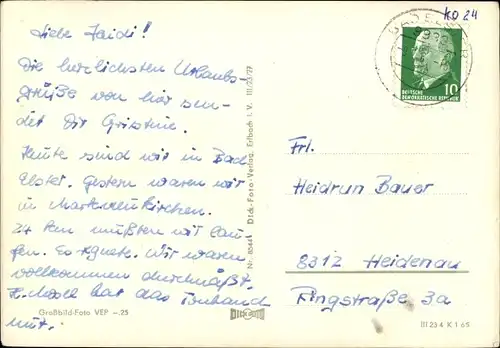 Liebe Heidi!
Die herzlichsten Urlaubs-
grüße von hier sen-
det Dir Christine.
Heute sind wir in Bad
Elster. Gestern waren wir
in Markneukirchen.
24 km mußten wir lau-
fen. Es regnete. Wir waren
vollkommen durchnäßt.
hat das Tonband
mit.
Großbild-Foto VEP -.25
Nr. 8044 Dick-Foto-Verlag, Erlbach i. V. III/23/27
DICK FOTO
KO 24
BAD ELSTER
DEUTSCHE
DEMOKRATISCHE REPUBLIK
10
Frl.
Heidrun Bauer
8312 Heidenau
Ringstraße 3a
III 23 4 K 1 65